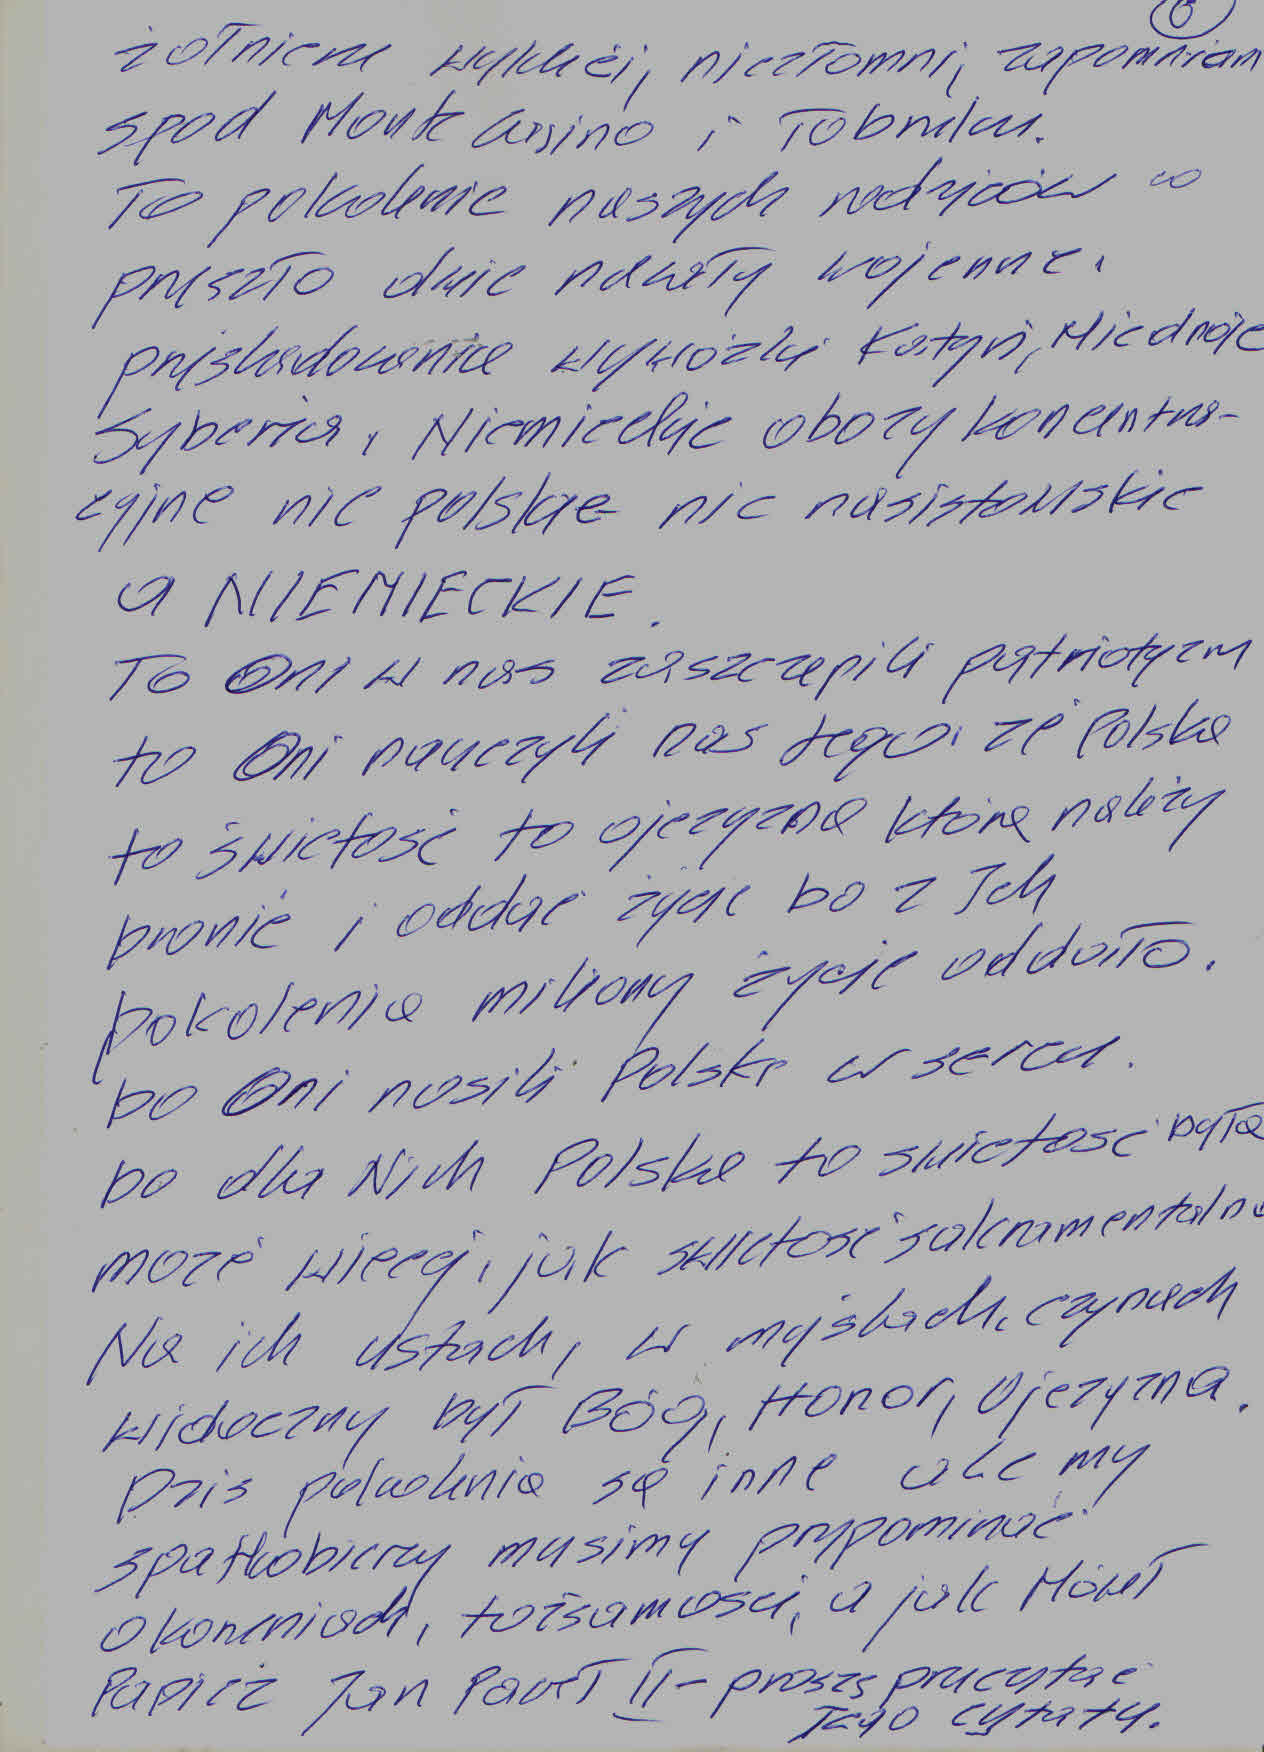 6
żołnierze wyklęci, niezłomni, zapomniani
spod Monte Cassino i Tobruku.
To pokolenie naszych rodziców co
przeszło dwie nawały wojenne.
prześladowania wywózki Katyń, Miednoje
Syberia, Niemieckie obozy koncentra-
cyjne nie polskie nie nasistowskie
a NIEMIECKIE.
To Oni w nas zaszczepili patriotyzm
to Oni nauczyli nas tego. że Polska
to świętość to ojczyzna którą należy
bronić i oddać życie bo z Ich
pokolenia miliony życie oddało.
bo Oni nosili Polskę w sercu.
bo dla Nich Polska to swiętość była
może więcej, jak swiętość sakramentalna
Na ich ustach, w myślach, czynach
widoczny był Bóg, Honor, Ojczyzna.
Dzis pokolenia są inne ale my
spatkobiercy musimy przypominać
o korzeniach, tożsamości, a jak Mówił
Papież Jan Paweł II - proszę przeczytać
Jego cytaty.